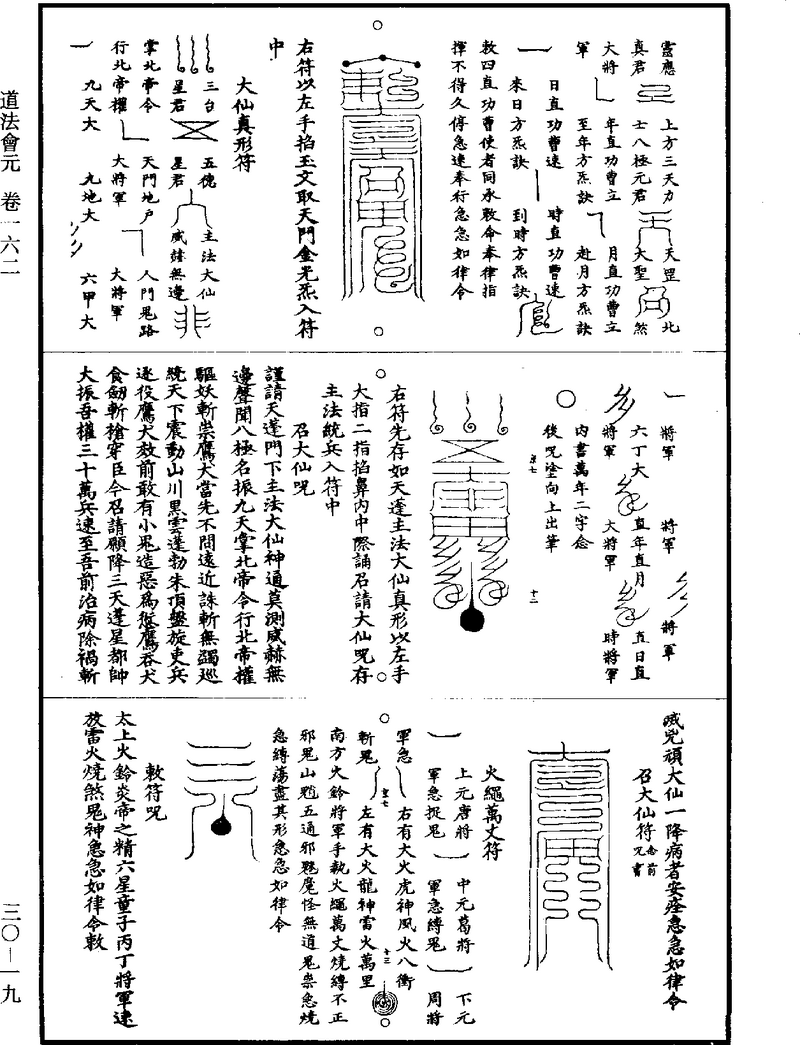 道法會元　卷一六二
三〇－一九
靈應
真君
上方三天力
士八極元君
天罡
大聖
北
煞
大將
軍
年直功曹立
至年方炁訣
月直功曹立
赴月方炁訣
日直功曹速
來日方炁訣
時直功曹速
到時方炁訣
敕四直功曹使者同承敕命奉律指
揮不得久停急速奉行急急如律令
右符以左手掐玉文取天門金光炁入符
中
大仙真形符
三台
星君
五德
星君
主法大仙
威雄無邊
掌北帝令
行北帝權
天門地戶
大將軍
人門鬼路
大將軍
九天大
九地大
六甲大
將軍
將軍
將軍
六丁大
將軍
直年直月
大將軍
直日直
時將軍
內書萬年二字念
後咒塗向上出筆
右符先存如天蓬主法大仙真形以左手
大指二指掐鼻內中際誦召請大仙咒存
主法統兵入符中
召大仙咒
謹請天蓬門下主法大仙神通莫測威赫無
邊聲聞八極名振九天掌北帝令行北帝權
驅妖斬祟鷹犬當先不問遠近誅斬無蠲巡
統天下震動山川黑雲蓬勃朱頂盤旋吏兵
逐役鷹犬效前敢有小鬼造惡為愆鷹吞犬
食劒斬槍穿臣今召請願降三天蓬星都帥
大振吾權三十萬兵速至吾前治病除禍斬
滅兇頑大仙一降病者安痊急急如律令
召大仙符
念前
咒書
火繩萬丈符
上元唐將
軍急捉鬼
中元葛將
軍急縛鬼
下元
周將
軍急
斬鬼
右有大火虎神風火八衝
左有大火龍神雷火萬里
南方火鈴將軍手執火繩萬丈燒縛不正
邪鬼山魈五通邪魅魔怪無道鬼祟急燒
急縛蕩盡其形急急如律令
敕符咒
太上火鈴炎帝之精六星童子丙丁將軍速
放雷火燒煞鬼神急急如律令敕